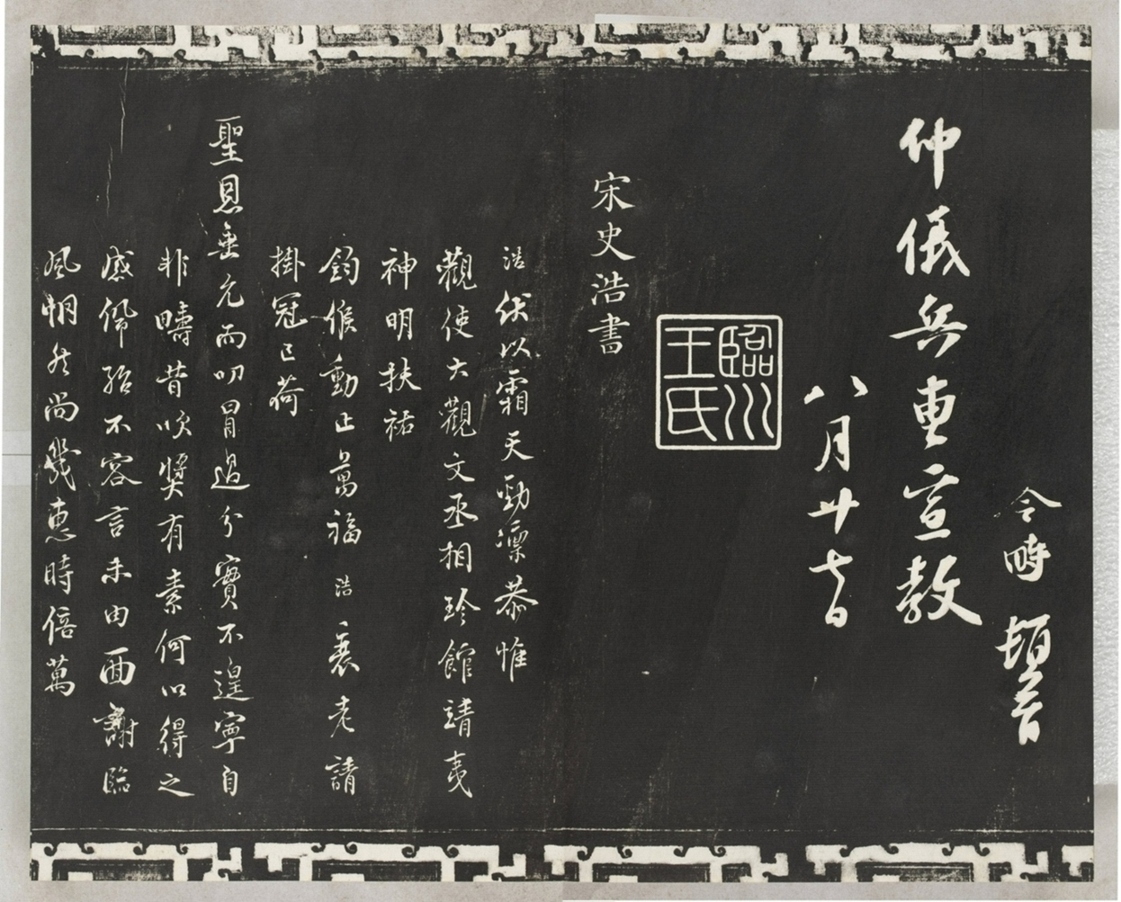 令畤 頓首
仲儀兵曹宣教
八月廿七日
臨川王氏
宋史浩書
浩伏以霜天勁凜恭惟
觀使大觀文丞相珍館靖夷
神明扶祐
鈞候動止萬福浩衰老請
掛冠已荷
聖恩垂允而叨冒過分實不遑寧自
非疇昔吹獎有素何以得之
感佩殆不容言未由面謝臨
風惘然尚幾惠時倍萬